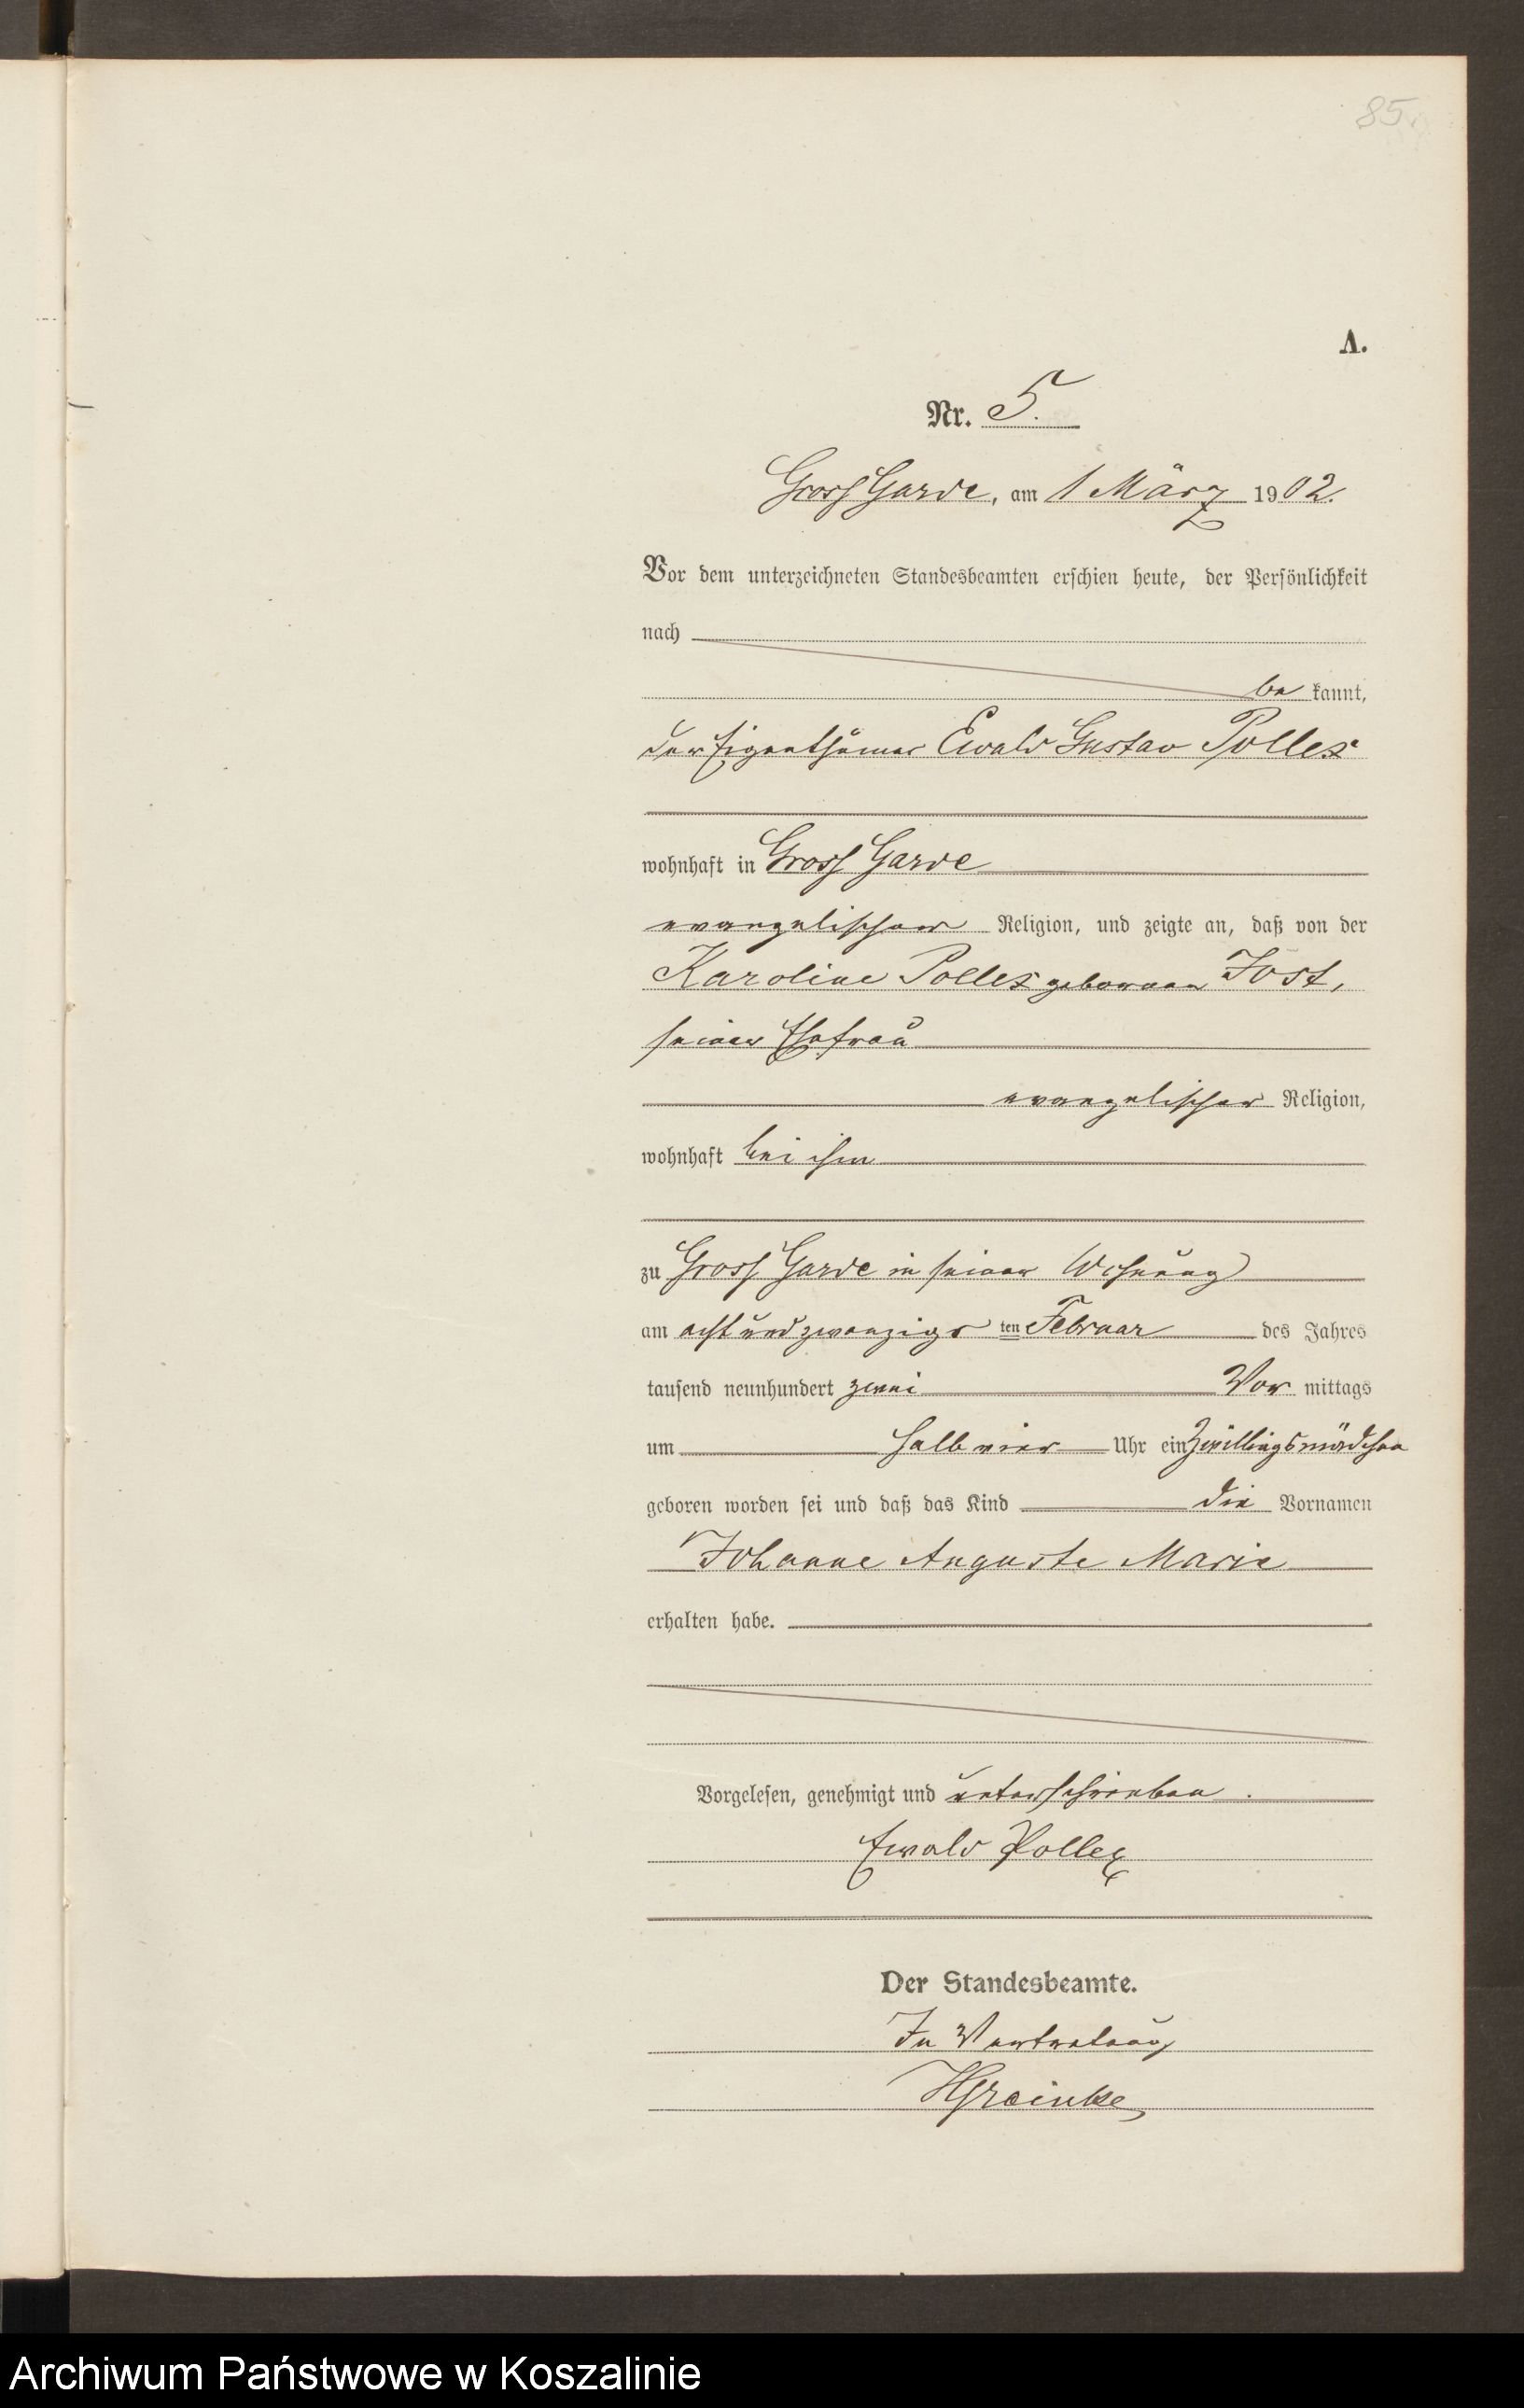 85.
A.
Nr. 5.
Gross Garde, am 1 März 1902.
Vor dem unterzeichneten Standesbeamten erschien heute, der Persönlichkeit
nach
be kannt,
der Eigenthümer Ewald Gustav Pollex
wohnhaft in Gross Garde
evangelischer Religion, und zeigte an, daß von der
Karoline Pollex geborenen Jost,
seiner Ehefrau
evangelischer Religion,
wohnhaft bei ihm
zu Gross Garde in seiner Wohnung
am acht und zwanzigs ten Februar des Jahres
tausend neunhundert zwei Vor mittags
um halb vier Uhr ein Zwillingsmädchen
geboren worden sei und daß das Kind die Vornamen
Johanne Auguste Marie
erhalten habe.
Vorgelesen, genehmigt und unterschrieben.
Ewald Pollex
Der Standesbeamte.
In Vertretung
Archiwum Państwowe w Koszalinie